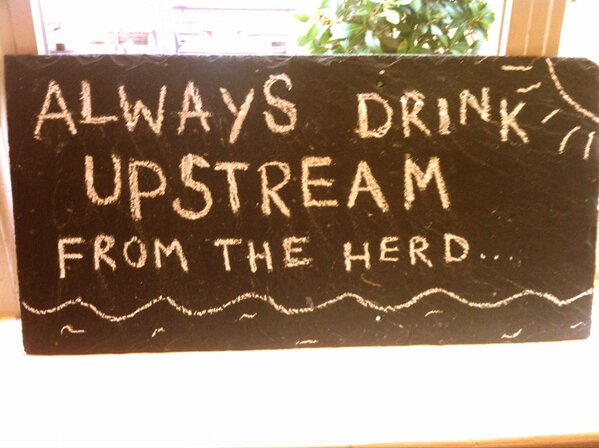 ALWAYS DRINK
UPSTREAM
FROM THE HERD...